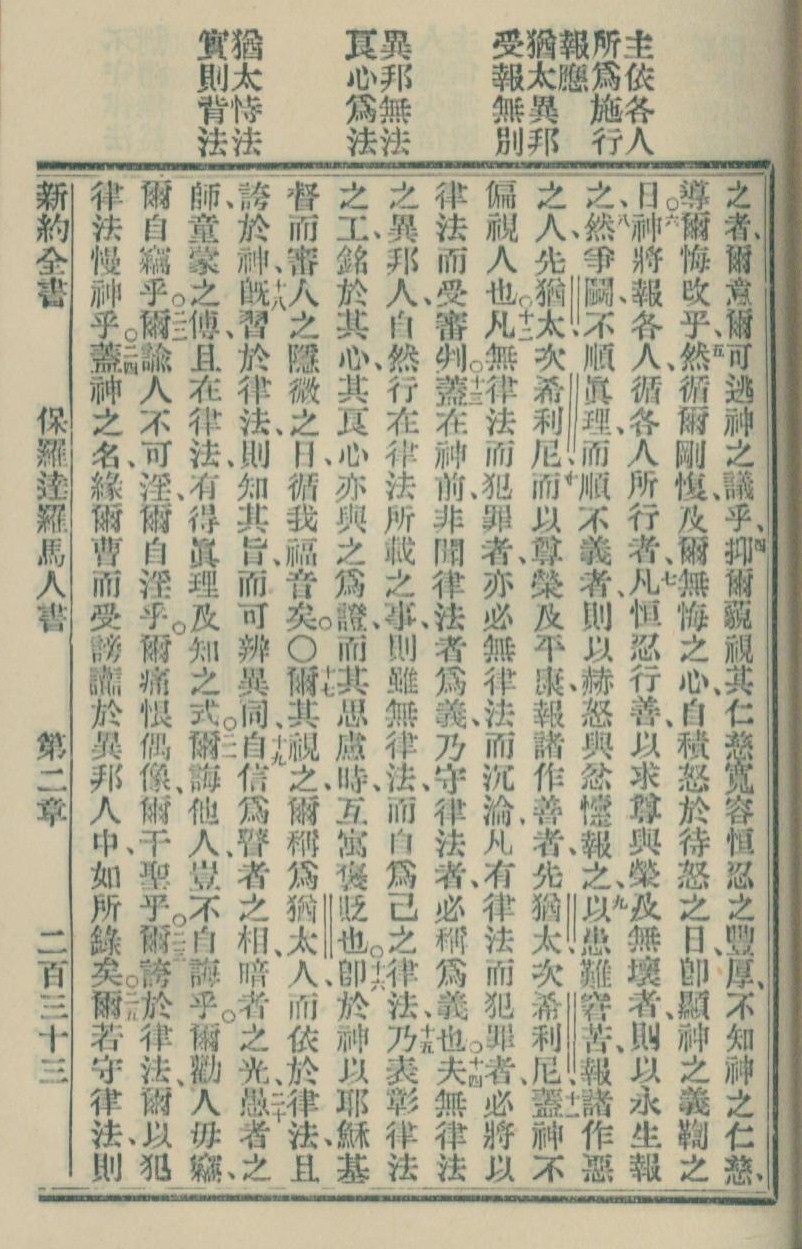 主依各人
所爲施行
報應
猶太異邦
受報無別
異邦無法
良心爲法
猶太恃法
實則背法
之者、爾意爾可逃神之議乎、四抑爾藐視其仁慈寬容恒忍之豐厚、不知神之仁慈、
導爾悔改乎、五然循爾剛愎、及爾無悔之心、自積怒於待怒之日、卽顯神之義鞫之
日、○六神將報各人、循各人所行者、七凡恒忍行善、以求尊與榮及無壞者、則以永生報
之、八然爭鬭、不順眞理、而順不義者、則以赫怒與忿懥報之、九以患難窘苦、報諸作惡
之人、先猶太、次希利尼、十而以尊榮及平康、報諸作善者、先猶太、次希利尼、十一蓋神不
偏視人也、○十二凡無律法而犯罪者、亦必無律法而沉淪、凡有律法而犯罪者、必將以
律法而受審判、○十三蓋在神前、非聞律法者爲義、乃守律法者、必稱爲義也、○十四夫無律法
之異邦人、自然行在律法所載之事、則雖無律法、而自爲己之律法、十五乃表彰律法
之工、銘於其心、其良心亦與之爲證、而其思慮時、互寓褒貶也、○十六卽於神以耶穌基
督而審人之隱微之日、循我福音矣。〇十七爾其視之、爾稱爲猶太人、而依於律法、且
誇於神、十八旣習於律法、則知其旨、而可辨異同、十九自信爲瞽者之相、暗者之光、二十愚者之
師、童蒙之傅、且在律法、有得眞理及知之式、○二一爾誨他人、豈不自誨乎。爾勸人毋竊、
爾自竊乎、○二二爾諭人不可淫、爾自淫乎。爾痛恨偶像、爾干聖乎、○二三爾誇於律法、爾以犯
律法慢神乎、○二四蓋神之名、緣爾曹而受謗讟於異邦人中、如所錄矣、○二五爾若守律法、則
新約全書　保羅達羅馬人書　第二章　二百三十三